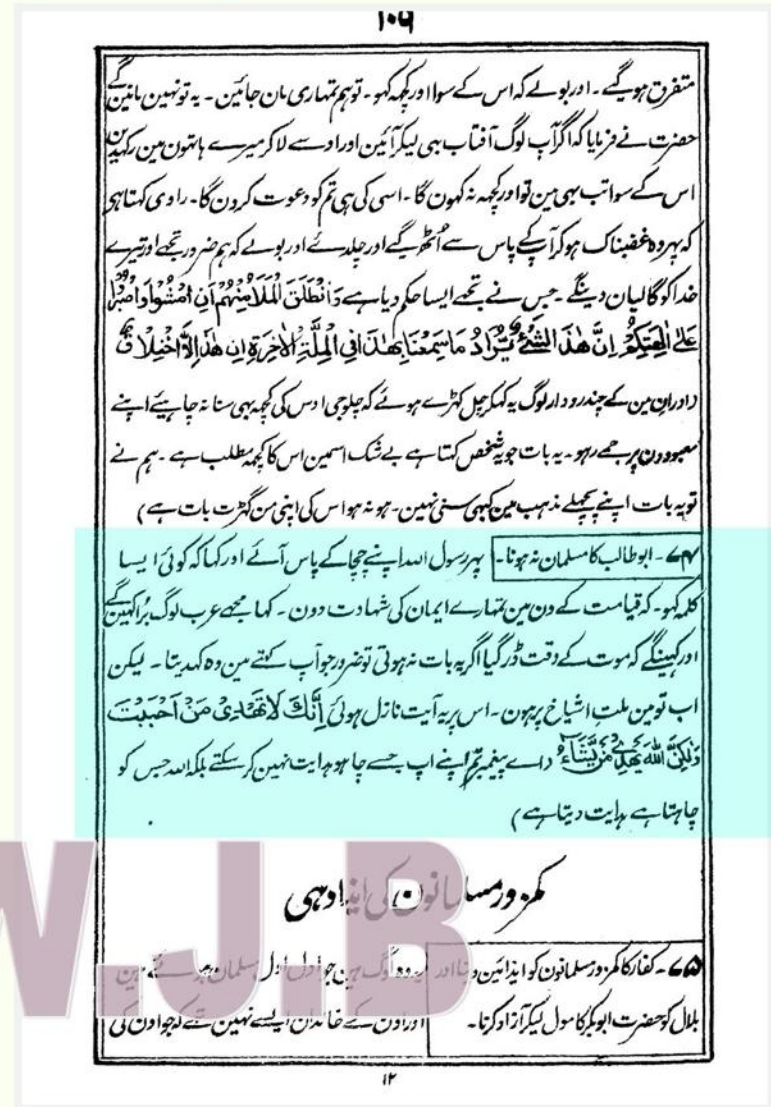 ۱۰۶
متفرق ہو گیے ۔ اور بولے کہ اس کے سوا اور کچھ کہو ۔ تو ہم تمہاری مان جائین ۔ یہ تو نہین مانین گے
حضرت نے فرمایا کہ اگر آپ لوگ آفتاب بہی لیکر آئین اور اوسے لا کر میرے ہاتھون مین رکہدین
اس کے سوا تب بہی مین تو اور کچہہ نہ کہون گا ۔ اسی کی ہی تم کو دعوت کرون گا ۔ راوی کہتا ہی
کہ پہر وہ غضبناک ہو کر آپ کے پاس سے اُٹھ گیے اور چلدے اور بولے کہ ہم ضرور تجھے اور تیرے
خدا کو گالیان دینگے ۔ جس نے تجھے ایسا حکم دیا ہے وَانْطَلَقَ الْمَلَأُ مِنْهُمْ أَنِ امْشُوا وَاصْبِرُوْا
عَلٰى اٰلِهَتِكُمْ اِنَّ هٰذَا لَشَيْءٌ يُّرَادُ مَا سَمِعْنَا بِهٰذَا فِي الْمِلَّةِ الْاٰخِرَةِ اِنْ هٰذَا اِلَّا اخْتِلَاقٌ
(اور ان مین کے چند رودار لوگ یہ کہکر چل کہڑے ہوئے کہ چلو جی اوس کی کچہہ بہی سنا نہ چاہیئے اپنے
معبودون پر جمے رہو ۔ یہ بات جو یہ شخص کہتا ہے بے شک اسمین اس کا کچہہ مطلب ہے ۔ ہم نے
تو یہ بات اپنے پچہلے مذہب مین کبہی سنی نہین ۔ ہو نہ ہو اس کی اپنی من گہڑت بات ہے)
۷۴ ۔ ابو طالب کا مسلمان نہ ہونا ۔ پہر رسول اللہ اپنے چچا کے پاس آئے اور کہا کہ کوئی ایسا
کلمہ کہو ۔ کہ قیامت کے دن مین تمہارے ایمان کی شہادت دون ۔ کہا مجھے عرب لوگ بُرا کہین گے
اور کہینگے کہ موت کے وقت ڈر گیا اگر یہ بات نہ ہوتی تو ضرور جو آپ کہتے مین وہ کہدیتا ۔ لیکن
اب تو مین ملتِ اشیاخ پر ہون ۔ اس پر یہ آیت نازل ہوئی اِنَّكَ لَا تَهْدِىْ مَنْ اَحْبَبْتَ
وَلٰكِنَّ اللّٰهَ يَهْدِىْ مَنْ يَّشَآءُ (اے پیغمبر تم اپنے اپ جسے چاہو ہدایت نہین کر سکتے بلکہ اللہ جس کو
چاہتا ہے ہدایت دیتا ہے)
کمزور مسلمانون کی ایذا دہی
۷۵ ۔ کفار کا کمزور مسلمانون کو ایذائین دینا اور یہ وہ لوگ ہین جو اول اول مسلمان ہو گئے ہین
بلال کو حضرت ابو بکر کا مول لیکر آزاد کرنا ۔ اور اون کے خاندان ایسے نہین تہے کہ جو اون کی
۱۲
W.J.B